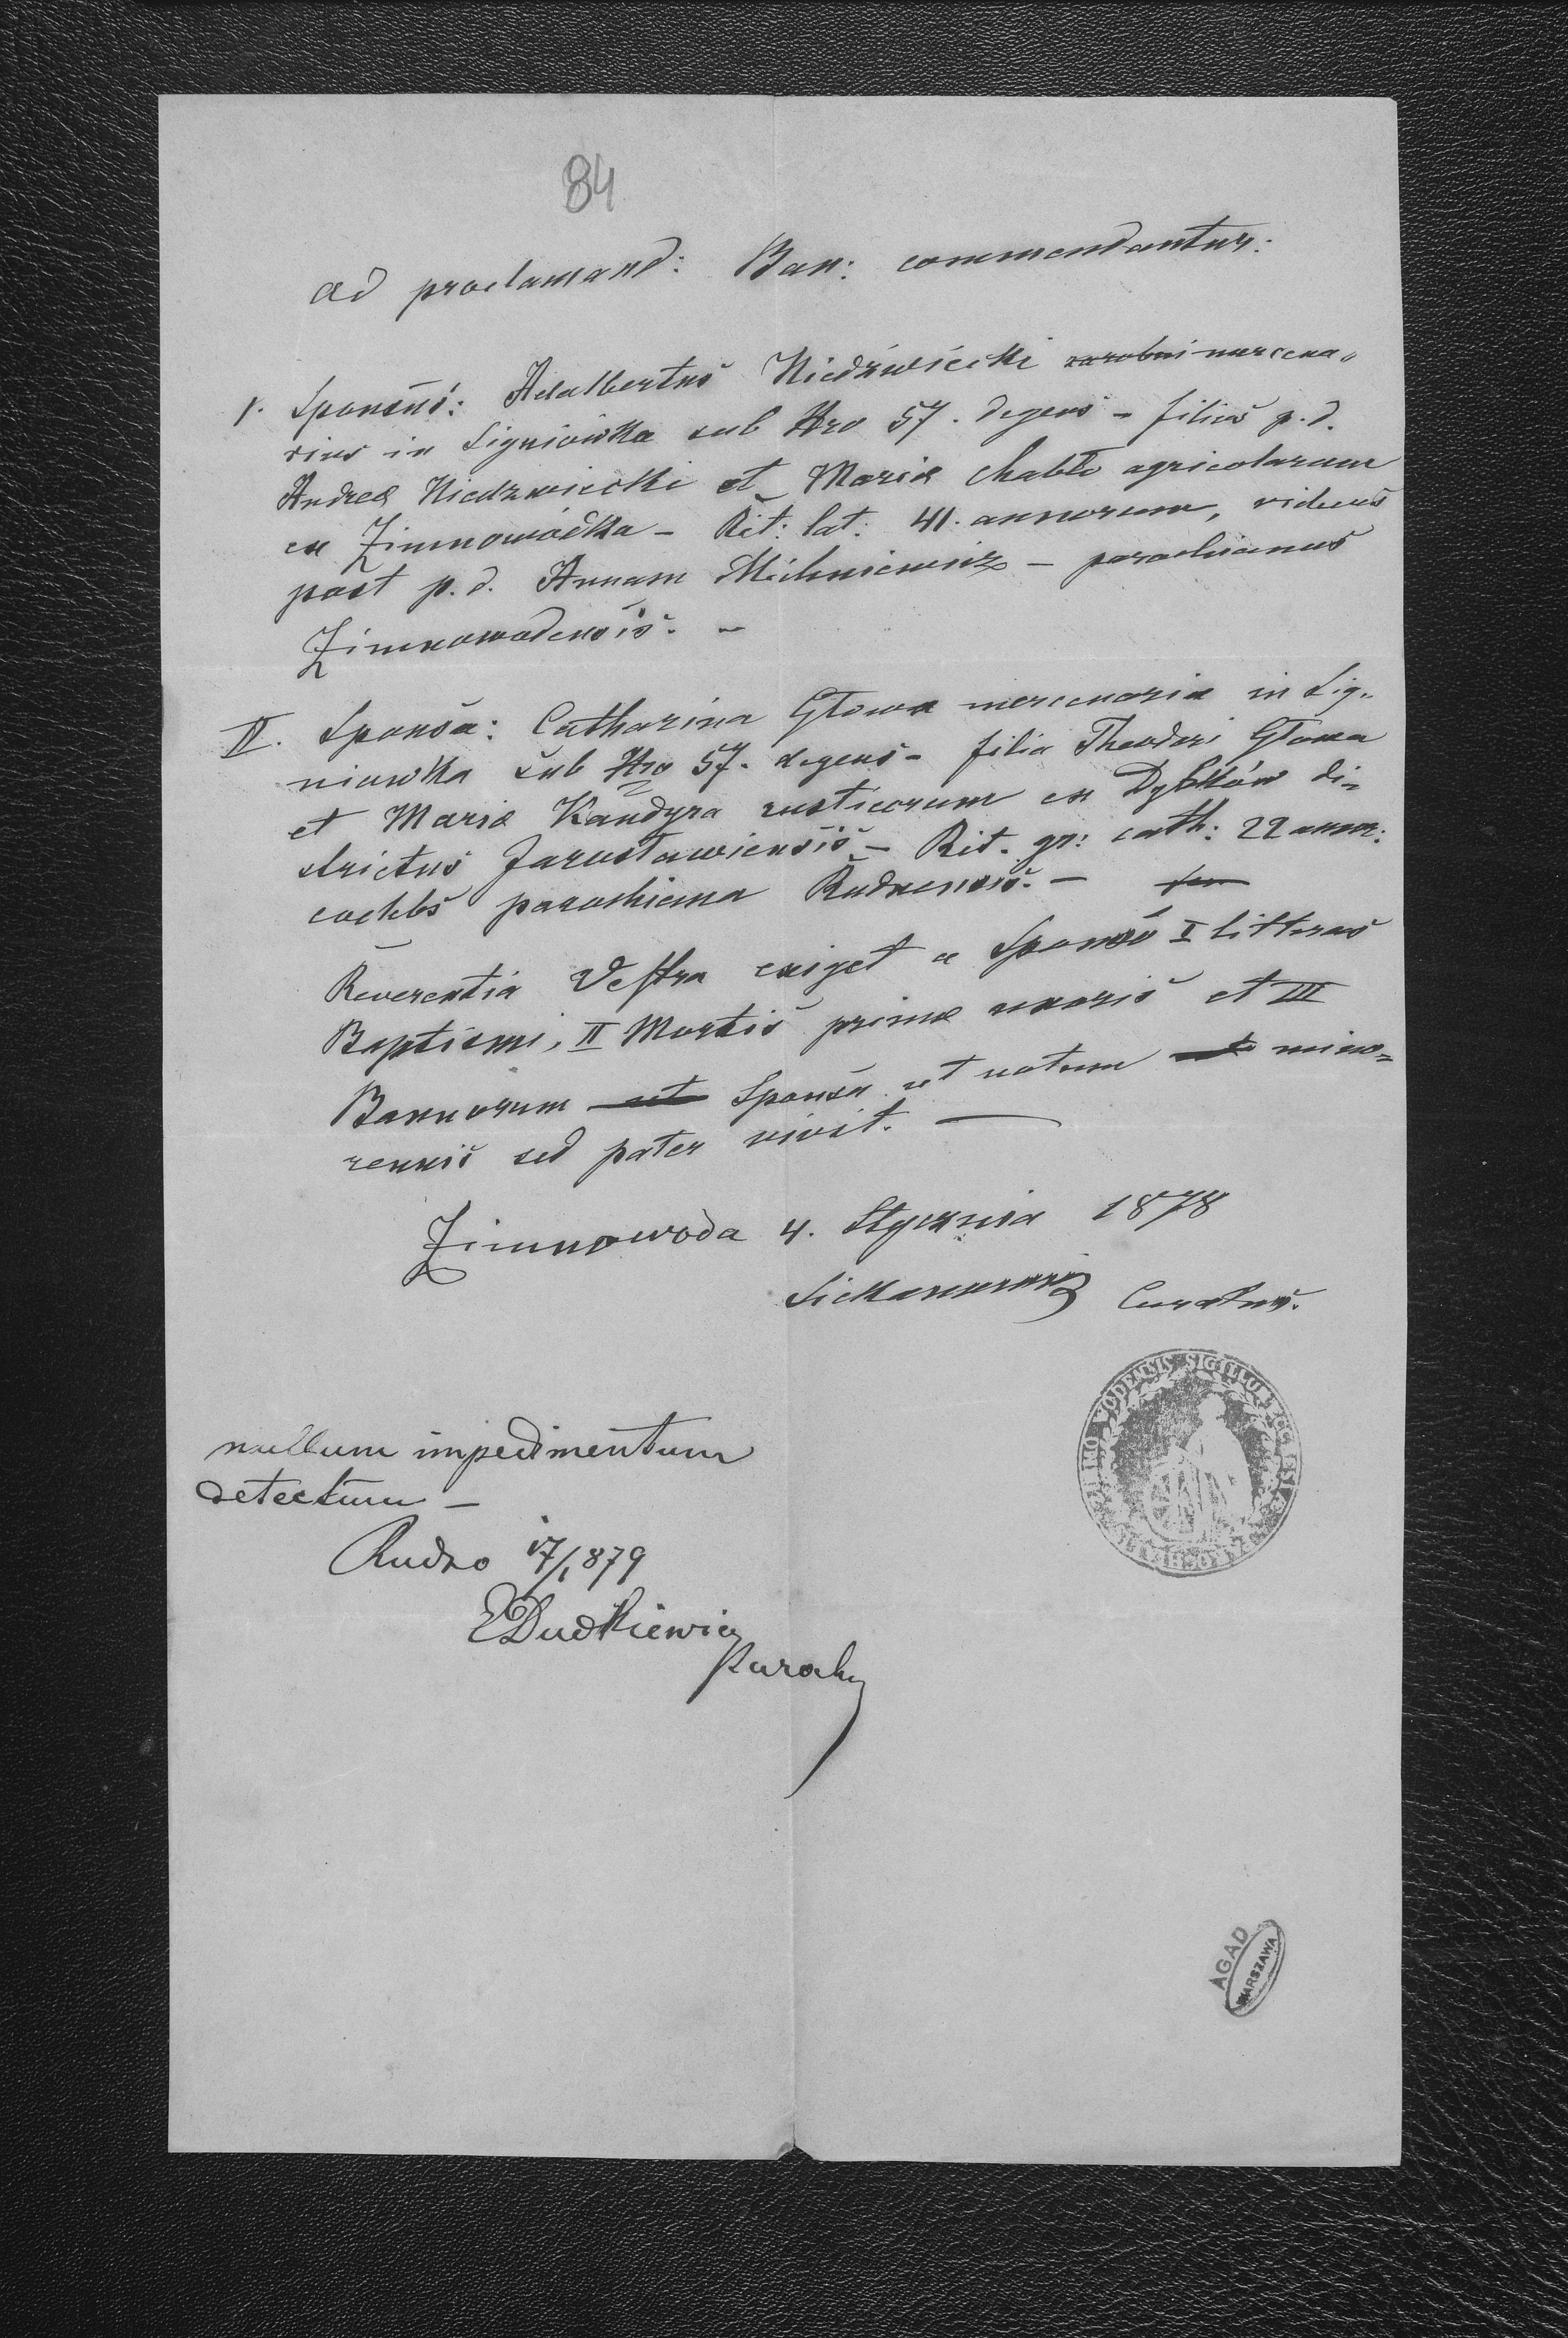 84
ad proclamand: Ban: commendantur:
I. Sponsus: Adalbertus Niedźwiecki zarobni mercena„
rius in Signiówka sub Nro 57. degens – filius p.d.
Andreæ Niedzwiecki et Mariæ Chabło agricolarum
ex Zimnowódka – Rit: lat: 41. annorum, viduus
post p.d. Annam Michniewicz – parochianus
Zimnowodensis. –
II. Sponsa: Catharina Głowa mercenaria in Sig-
niowka sub Nro 57. degens – filia Theodori Głowa
et Mariæ Kandyra rusticorum ex Dybków di-
strictus Jarosławiensis – Rit. gr: cath: 22 ann:
coelebs parochiana Rudnensis. –
Reverentia Vestra exiget a Sponso I litteras
Baptismi, II Mortis primæ uxoris et III
Bannorum et Sponsa ut notum mino=
rennis sed pater vivit. —
Zimnowoda 4. Stycznia 1878
Curatus.
ZIMNO WODENSIS SIGILLUM ECCLESI
nullum impedimentum
detectum –
Rudno 17/1 879
EDudkiewicz
Parochus
AGAD
WARSZAWA